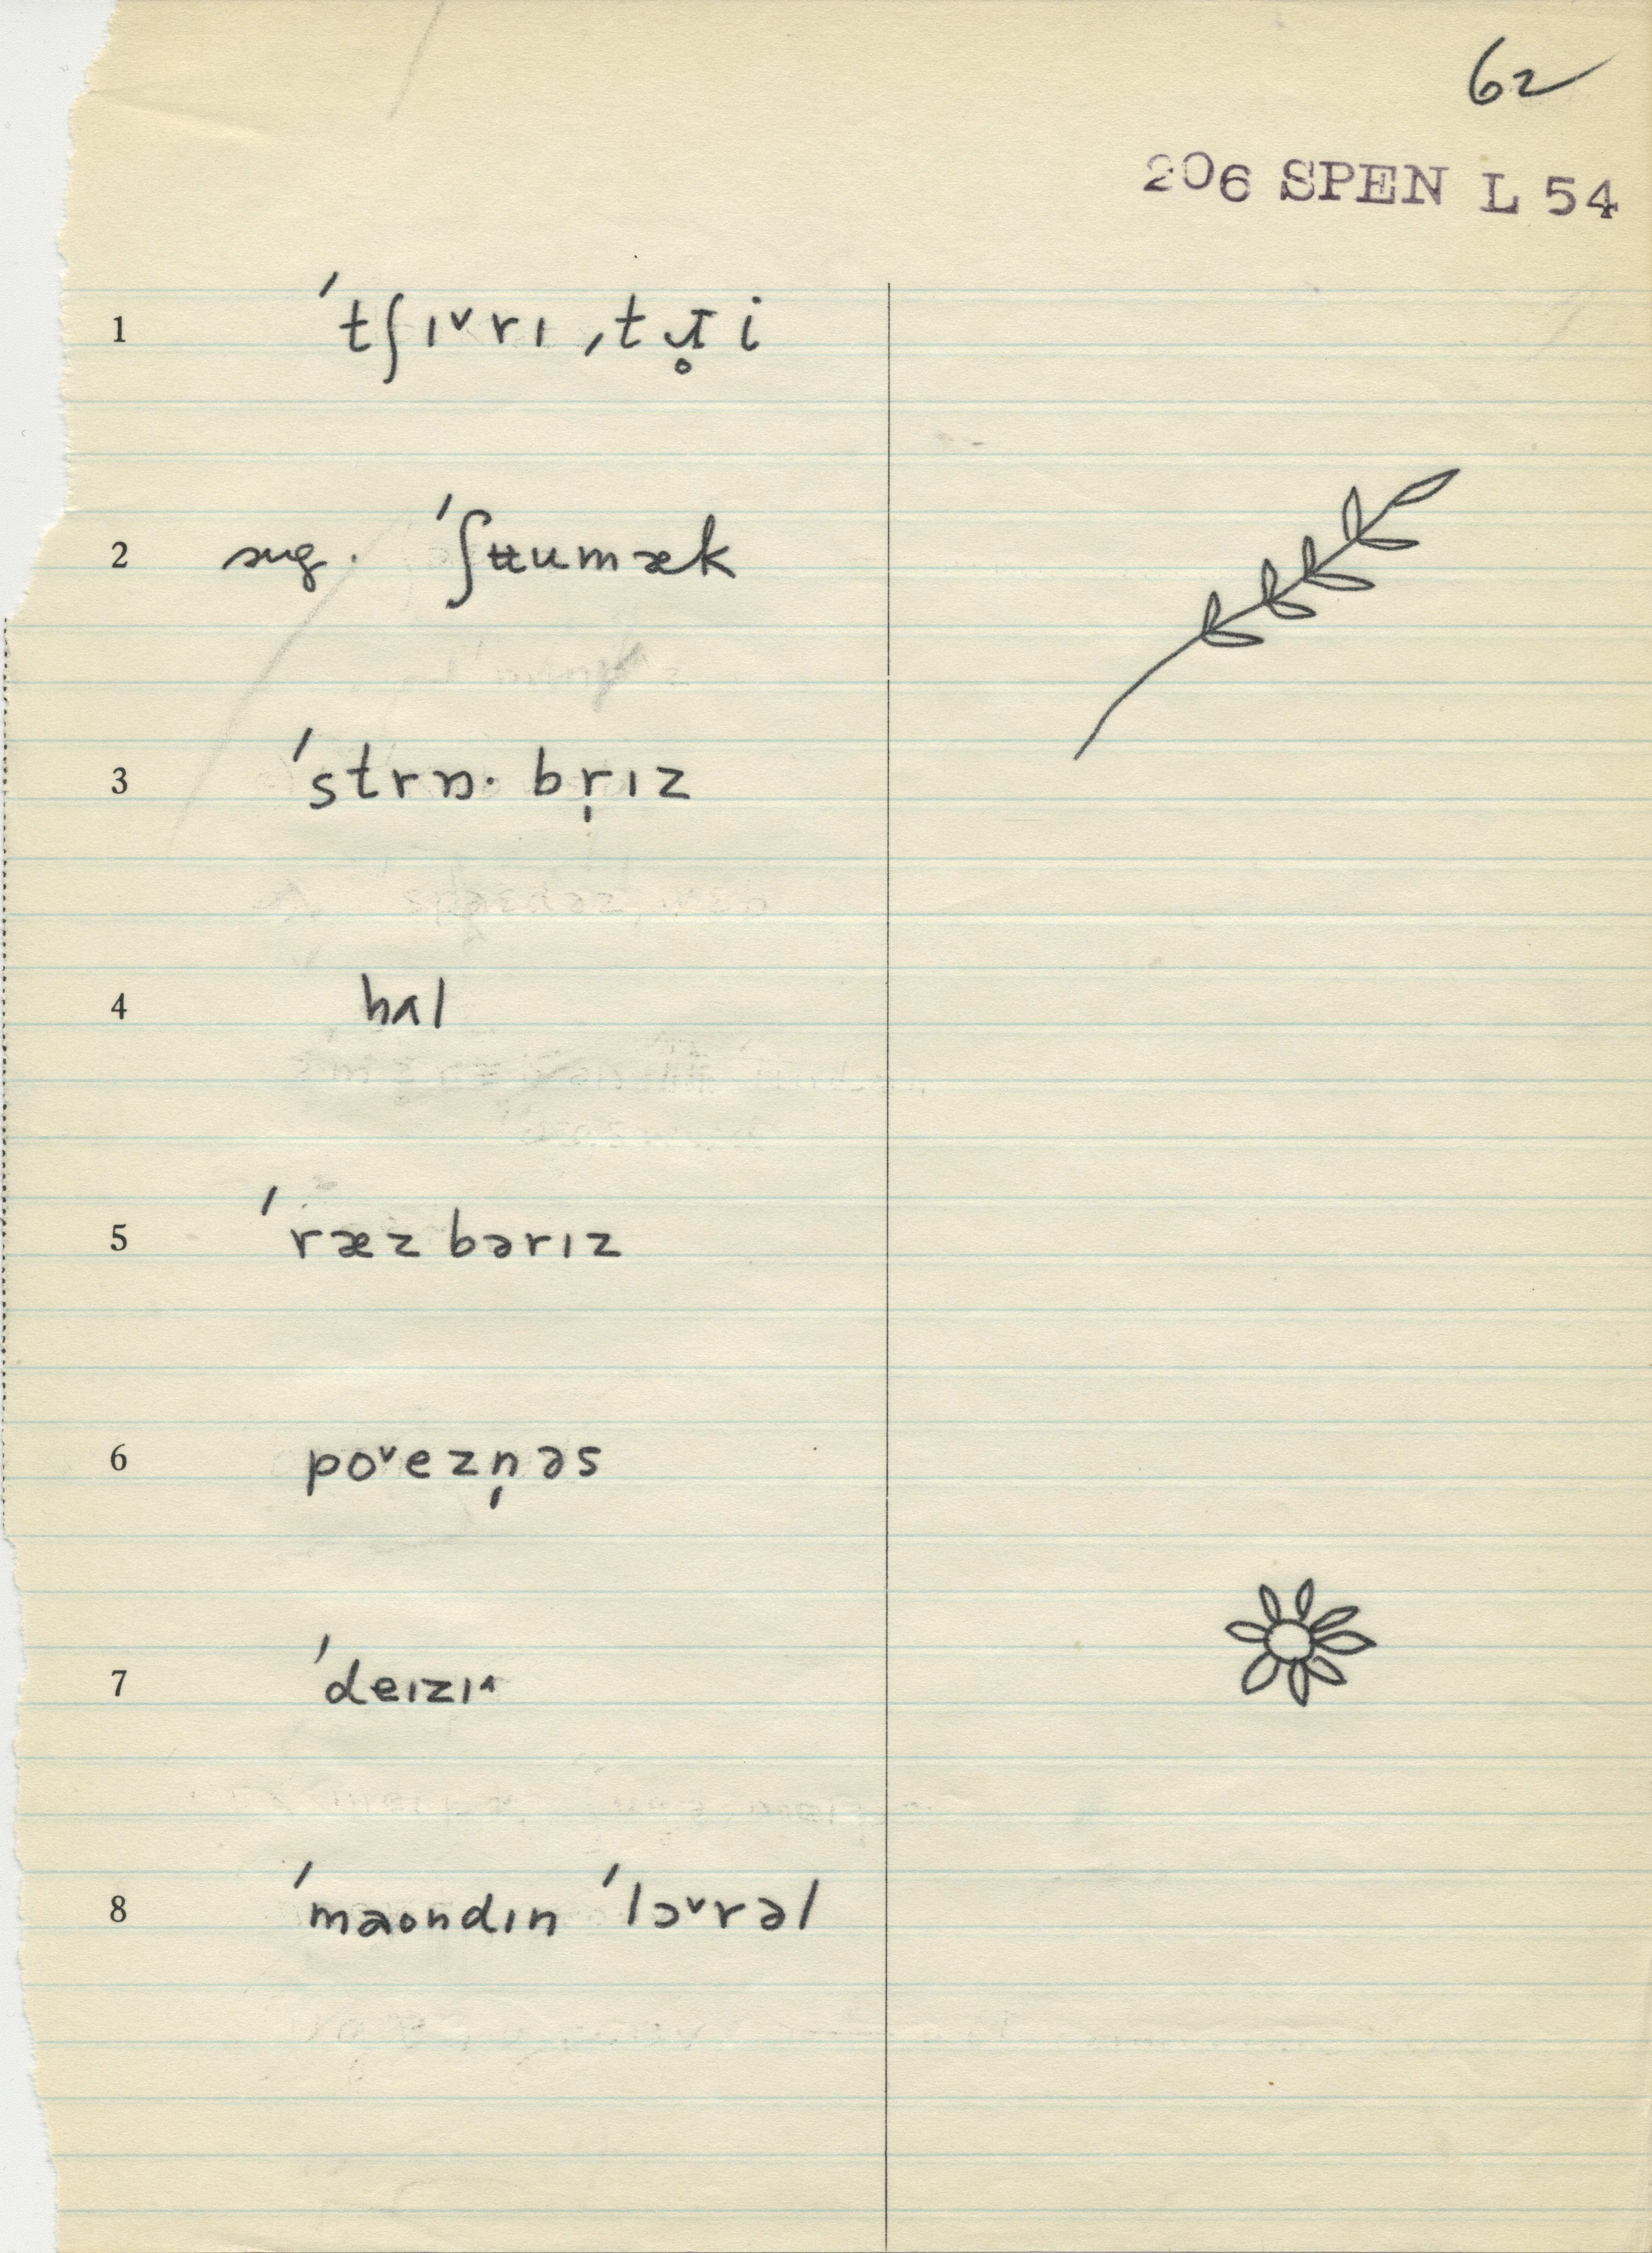 62
206 SPEN L 54
1 ˈtʃɪ˅rɪ ˌtɹ̥i
2 sug. ˈʃʉumæk
3 ˈstrɒ· br̩ɪz
4 hal
5 ˈræzbərɪz
6 po˅ezn̩əs
7 ˈdeɪzɪ˄
8 ˈmaondɪn ˈlɔ˅rəl